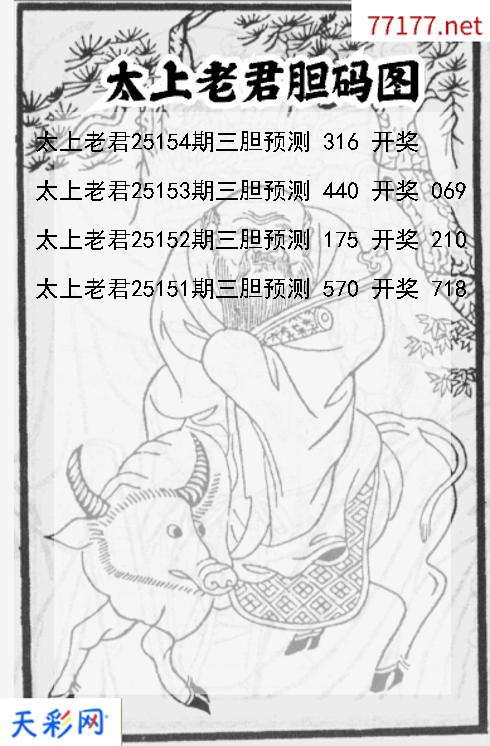 77177.net
太上老君胆码图
太上老君25154期三胆预测 316 开奖
太上老君25153期三胆预测 440 开奖 069
太上老君25152期三胆预测 175 开奖 210
太上老君25151期三胆预测 570 开奖 718
天彩网